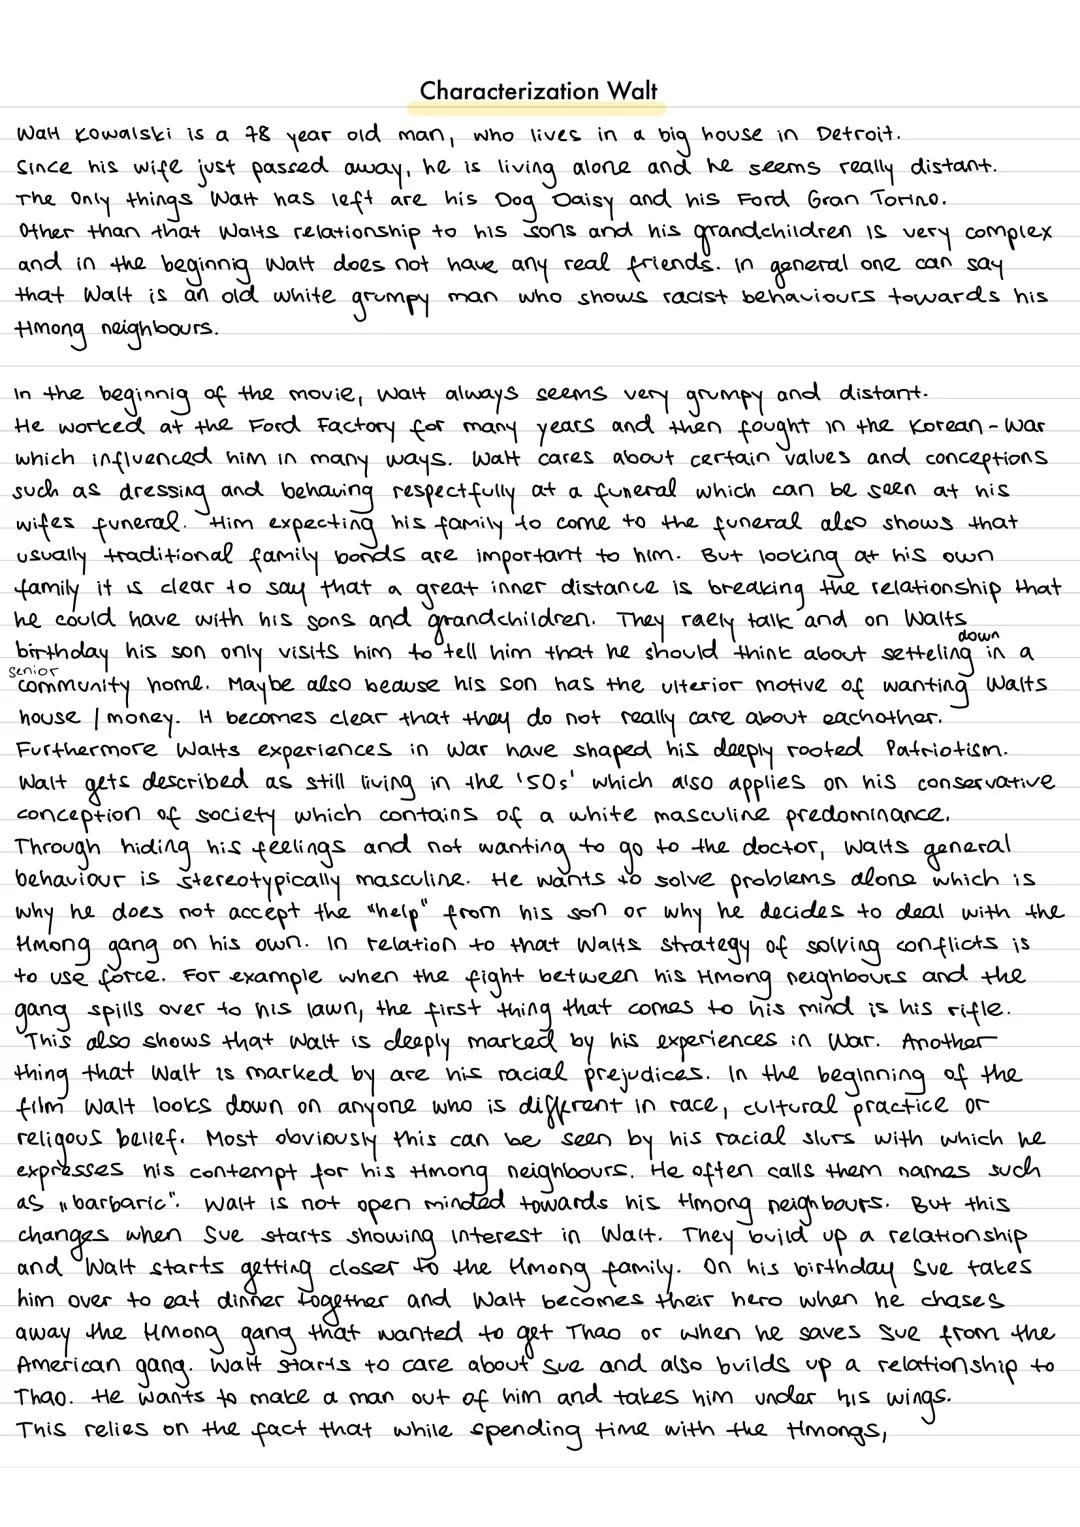 Characterization Walt
Walt Kowalski is a 78 year old man, who lives in a big house in Detroit.
Since his wife just passed away, he is living alone and he seems really distant.
The Only things Walt has left are his Dog Daisy and his Ford Gran Torino.
Other than that Walts relationship to his sons and his grandchildren is very complex
and in the beginnig Walt does not have any real friends. In general one can say
that Walt is an old white grumpy man who shows racist behaviours towards his
Hmong neighbours.
In the beginnig of the movie, Walt always seems very grumpy and distant.
He worked at the Ford Factory for many years and then fought in the Korean-War
which influenced him in many ways. Walt cares about certain values and conceptions
such as dressing and behaving respectfully at a funeral which can be seen at his
wifes funeral. Him expecting his family to come to the funeral also shows that
usually traditional family bonds are important to him. But looking at his own
family it is clear to say that a great inner distance is breaking the relationship that
he could have with his sons and grandchildren. They raely talk and on Walts
birthday his son only visits him to tell him that he should think about setteling down in a
senior community home. Maybe also beause his son has the ulterior motive of wanting Walts
house / money. It becomes clear that they do not really care about eachother.
Furthermore Walts experiences in War have shaped his deeply rooted Patriotism.
Walt gets described as still living in the '50s' which also applies on his conservative
conception of society which contains of a white masculine predominance.
Through hiding his feelings and not wanting to go to the doctor, Walts general
behaviour is stereotypically masculine. He wants to solve problems alone which is
why he does not accept the "help" from his son or why he decides to deal with the
Hmong gang on his own. In relation to that Walts strategy of solving conflicts is
to use force. For example when the fight between his Hmong neighbours and the
gang spills over to his lawn, the first thing that comes to his mind is his rifle.
This also shows that Walt is deeply marked by his experiences in War. Another
thing that Walt is marked by are his racial prejudices. In the beginning of the
film Walt looks down on anyone who is different in race, cultural practice or
religous belief. Most obviously this can be seen by his racial slurs with which he
expresses his contempt for his Hmong neighbours. He often calls them names such
as „barbaric". Walt is not open minded towards his Hmong neighbours. But this
changes when Sue starts showing interest in Walt. They build up a relationship
and Walt starts getting closer to the Hmong family. On his birthday Sue takes
him over to eat dinner together and Walt becomes their hero when he chases
away the Hmong gang that wanted to get Thao or when he saves Sue from the
American gang. Walt starts to care about Sue and also builds up a relationship to
Thao. He wants to make a man out of him and takes him under his wings.
This relies on the fact that while spending time with the Hmongs,